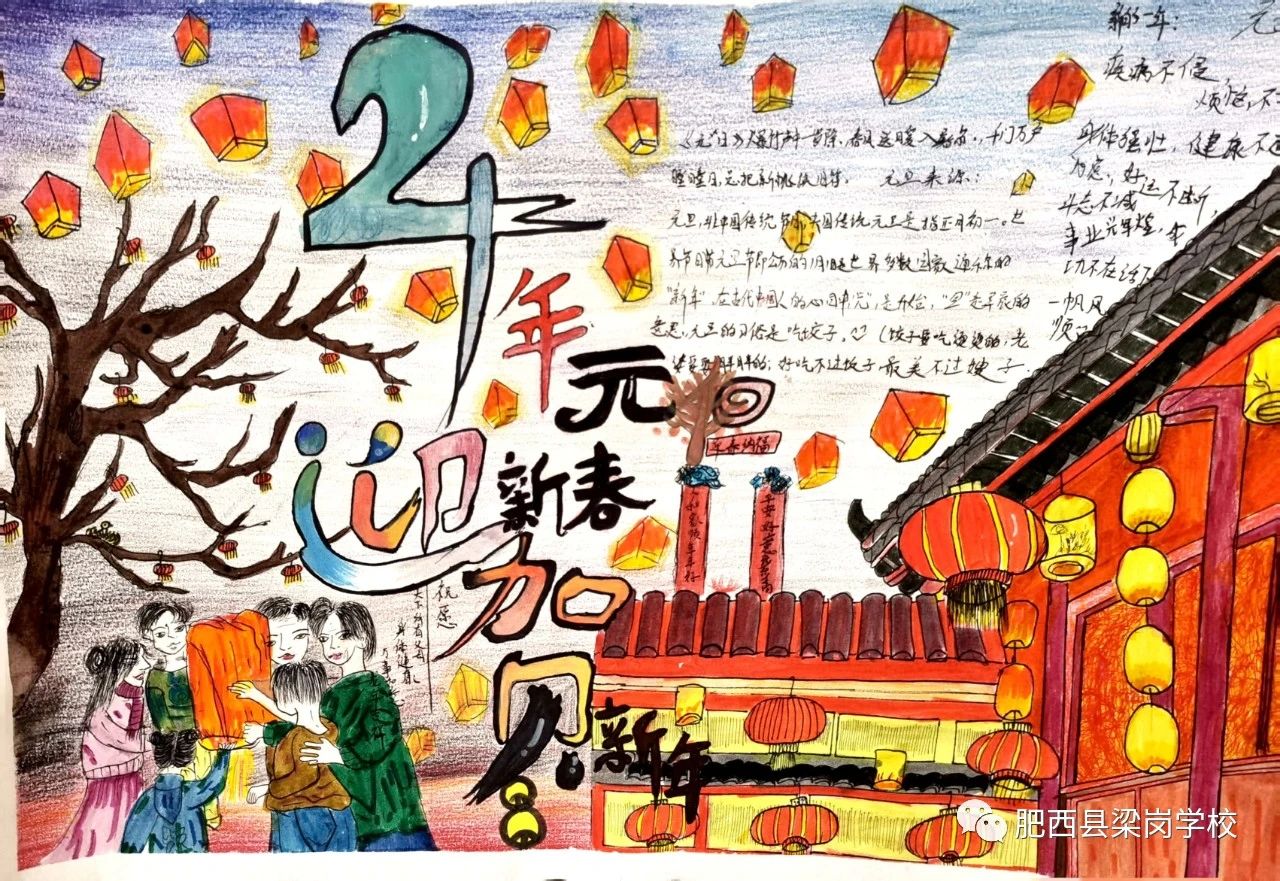 24年
元
迎
新春
加
贝
新年
《元日》爆竹声中一岁除,春风送暖入屠苏,千门万户
曈曈日,总把新桃换旧符. 元旦来源:
元旦,非中国传统节日中国传统元旦是指正月初一。世
界节日节元旦节即公历的1月1日是世界多数国家通称的
"新年",在古代中国人的心目中"元",是开始,"旦"是早晨的
意思,元旦的习俗是吃饺子。(饺子要吃烫烫的,老
婆要胖胖的,好吃不过饺子最美不过嫂子.
新的一年: 元
疾病不侵,
烦恼,不
身体强壮,健康不
为虑,好运不断,
斗志不减
事业
一帆风
顺
祝愿
身体健康
肥西县梁岗学校